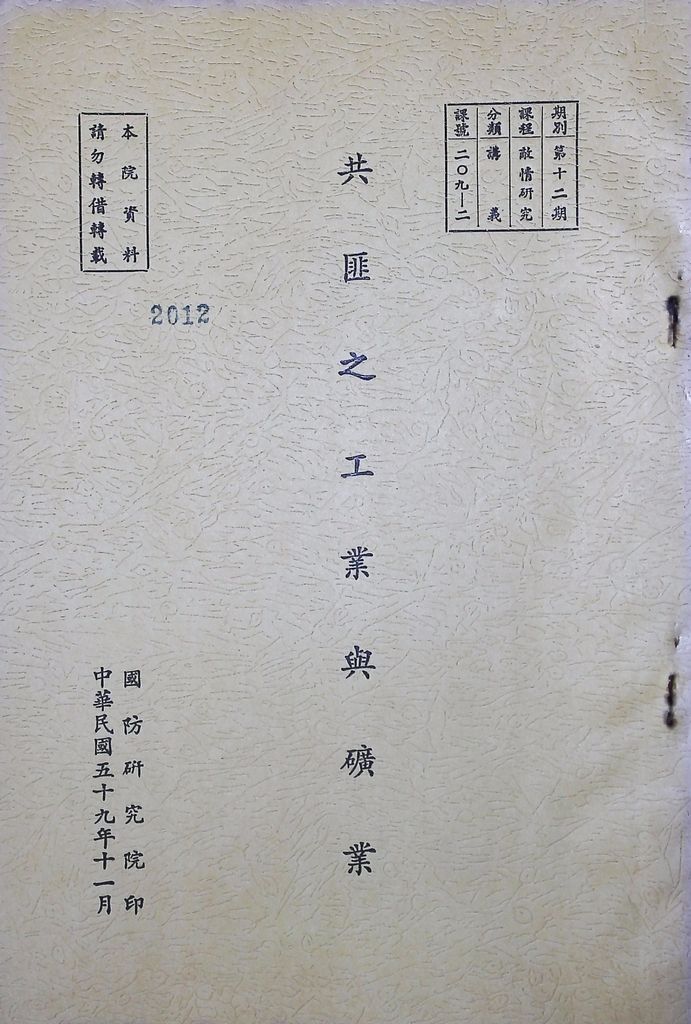 期別 第十二期
課程 敵情研究
分類 講義
課號 二〇九—二
共匪之工業與礦業
本院資料
請勿轉借轉載
2012
國防研究院印
中華民國五十九年十一月